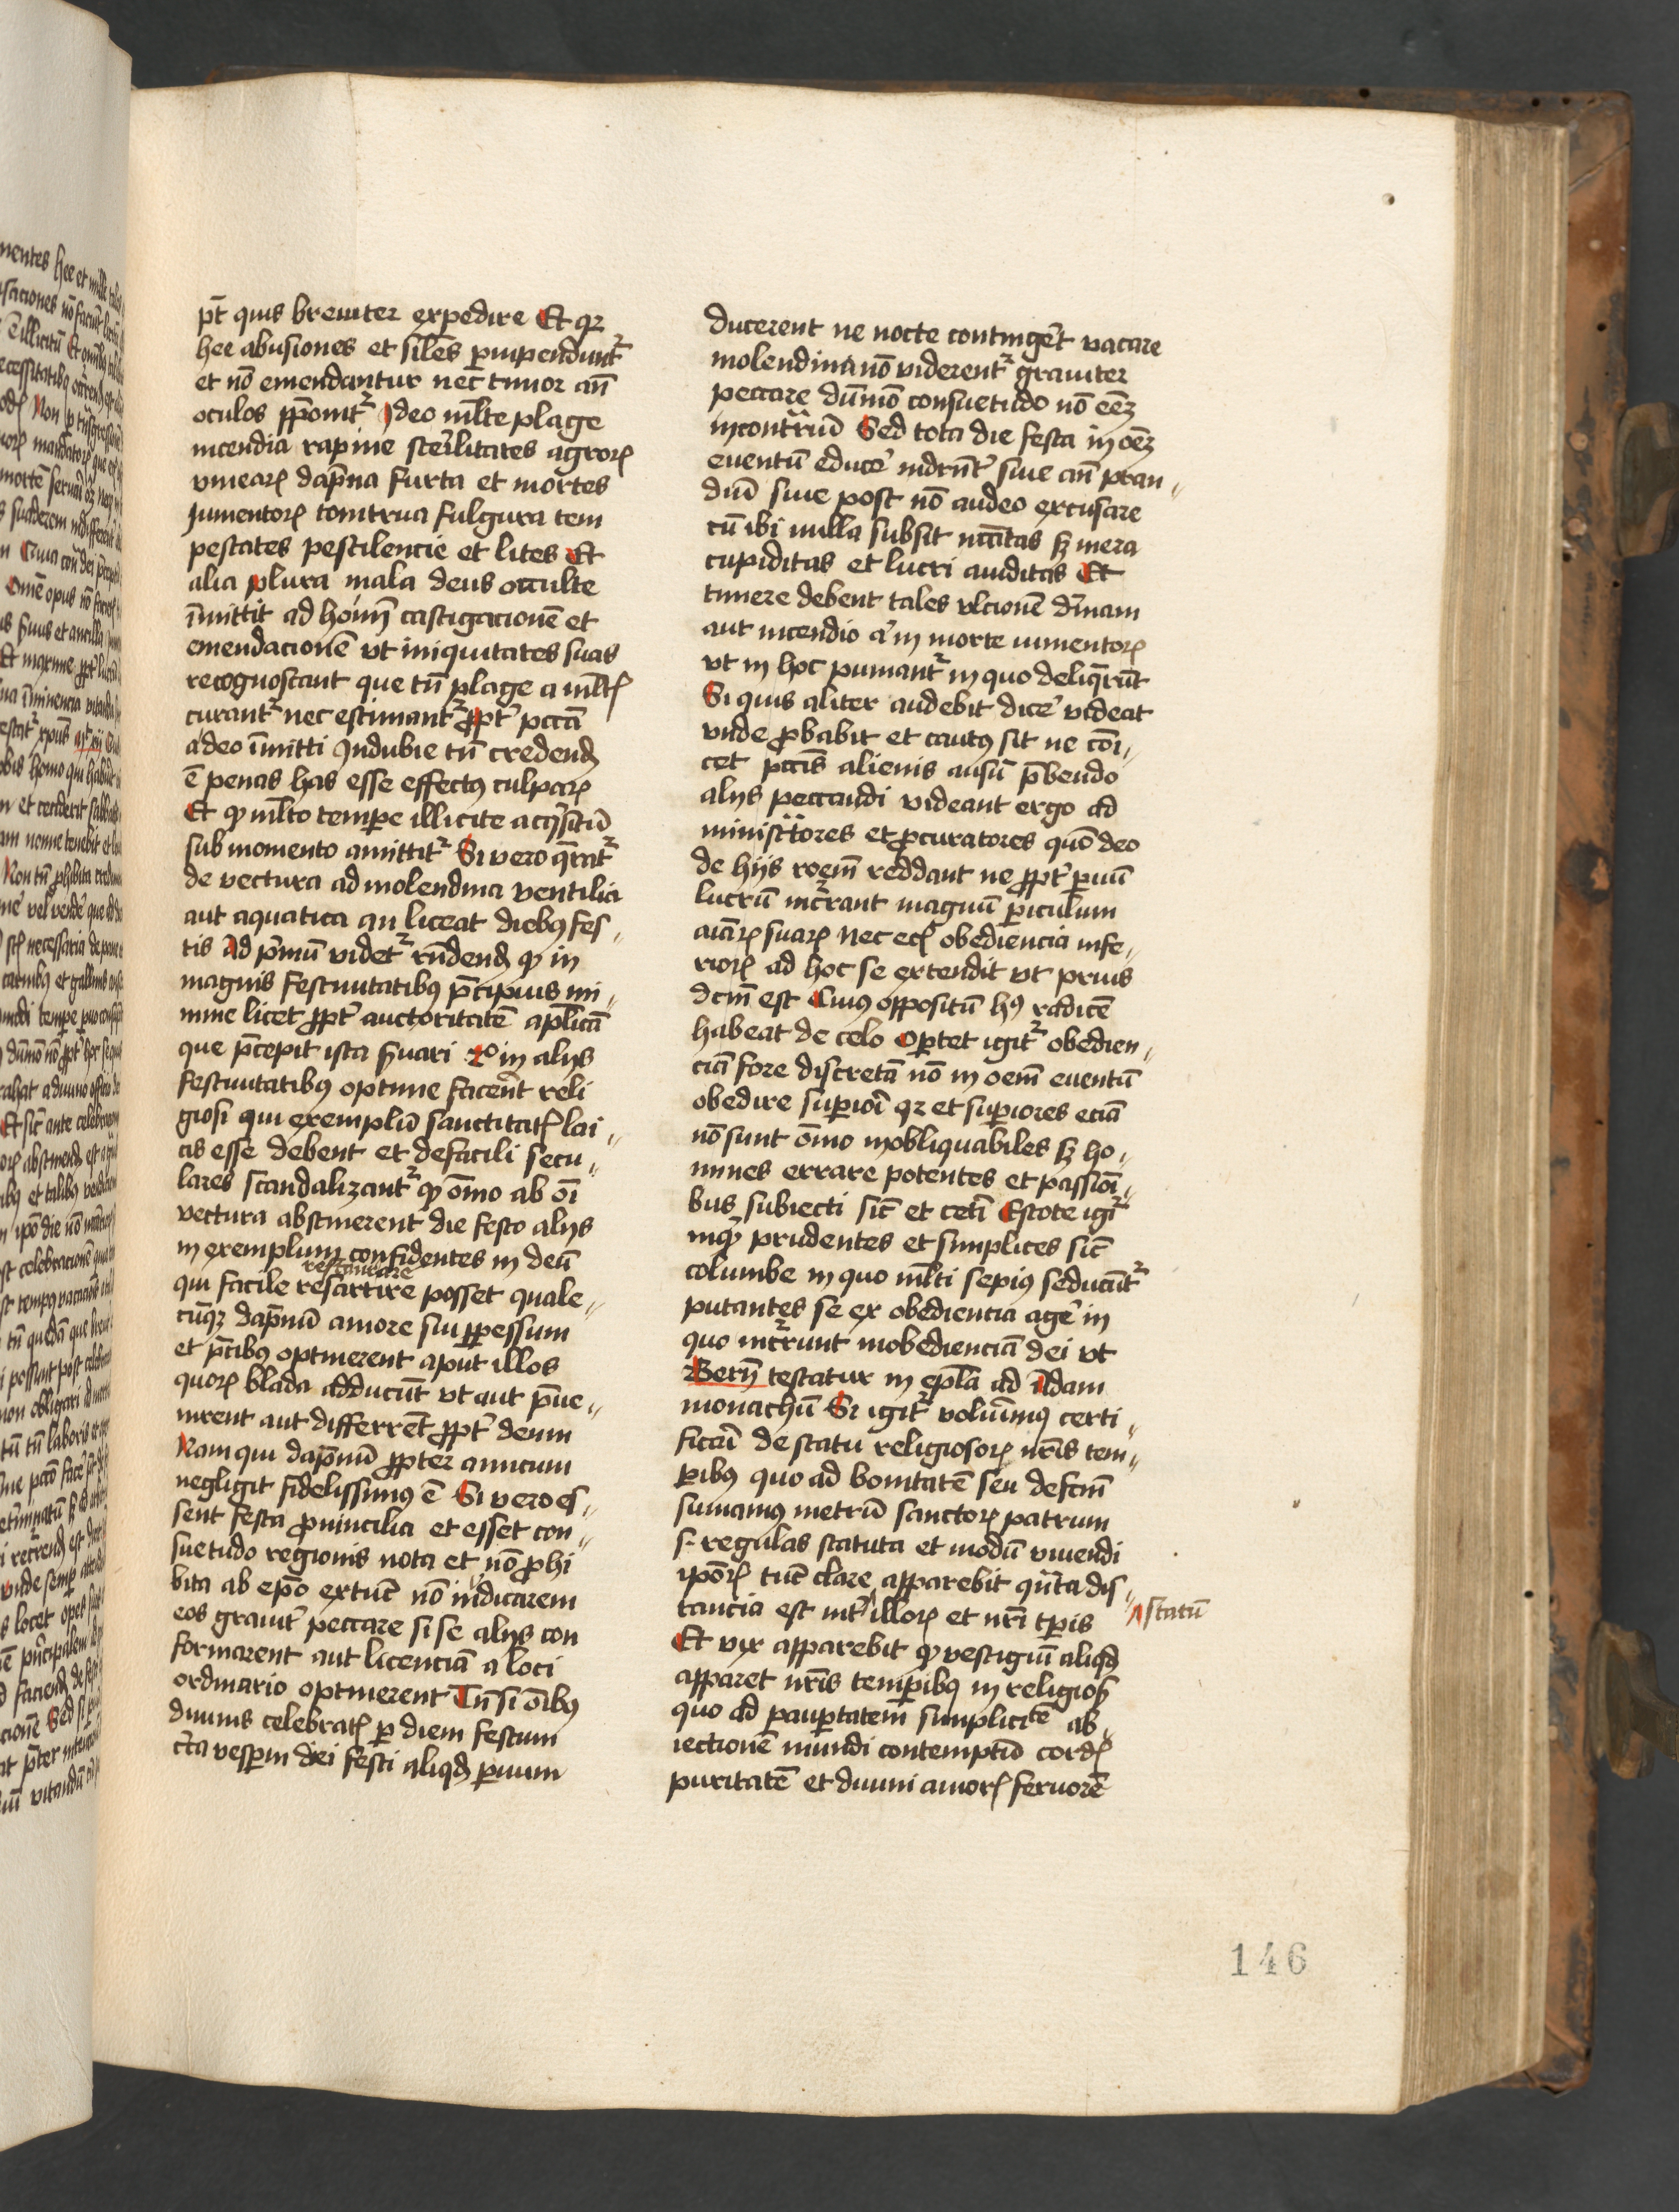 pt̄ quis breuiter expedire Et qꝛ
hee abusiones et siles̄ ꝑuipendunt᷑
et nō emendantur nec timor an̄
oculos ꝓponit᷑ Ideo ml̄te plage
incendia rapine sterilitates agroꝝ
vineaꝝ dāpna furta et mortes
Jumentoꝝ tonitrua fulgura tem
pestates pestilencie et lites Et
alia plura mala deus occulte
īmittit ad homī castigacionē et
emendacionē vt iniquitates suas
recognoscant que tn̄ plage a ml̄tꝭ
curant᷑ nec estimant᷑ ꝓpt̕ pcc̄ā
a deo īmitti Indubie tn̄ credendꝫ
ē penas has esse effectꝰ culpaꝝ
Et ꝙ ml̄to tempe illicite acq̇sitū
sub momento amittit᷑ Si vero q̄rat᷑
de vectura ad molendina ventilia
aut aquatica an liceat diebꝰ fes〃
tis Ad pͥmū videt᷑ rn̄dendꝫ ꝙ in
magnis festiuitatibꝰ p̄cipuis mi〃
nime licet ꝓpt̕ auctoritatē aplīcā
que p̄cepit ista ẜuari 2o in alijs
festiuitatibꝰ optime facerēt reli
giosi qui exemplū sanctitatꝭ lai〃
cis esse debent et defacili secu〃
lares scandalizant᷑ ꝙ ōīno ab ōī
vectura abstinerent die festo alijs
in exemplum confidentes in deū
restaurare
qui facile resartire posset quale〃
cūqꝫ dāpnū amore sui ꝑpessum
et p̄cibꝰ optinerent aput illos
quoꝝ blada adducūt vt aut p̄ue〃
nirent aut differrēt ꝓpt̕ deum
Nam qui dāpnū ꝓpter amicum
negligit fidelissimꝰ ē Si vero es〃
sent festa ꝓuincilia et esset con〃
suetudo regionis nota et nō ꝓhi
bita ab epō extūc nō iudicarem
eos grauit̕ peccare si se alijs con
formarent aut licenciā a loci
ordinario optinerent Tn̄ si ōībꝰ
diuinis celebratꝭ ꝑ diem festum
cͥca vesperā diei festi aliqͥdꝫ ꝑuum
ducerent ne nocte contingēt vacare
molendina nō viderent᷑ grauiter
peccare dūmō consuetudo nō eēꝫ
in contrͣriū Sed tota die festa in oēꝫ
euentū educe̕ indrn̄t̕ siue an̄ pran〃
diū siue post nō audeo excusare
cū ibi nulla subsit nccītas sꝫ mera
cupiditas et lucri auiditas Et
timere debent tales vlcionē dīnam
aut incendio a̕ in morte iumentoꝝ
vt in hoc puniant᷑ in quo deliq̄rūt
Si quis aliter audebit dice̕ videat
vnde ꝓbabit et cautꝰ sit ne cōī〃
cet pccīs alienis ausū p̄bendo
alijs peccandi videant ergo ad
ministrͣtores et ꝓcuratores quō deo
de hijs rōem reddant ne ꝓpt̕ ꝑuū
lucrū incᷓrrant magnū ꝑiculum
aīaꝝ suaꝝ Nec ecꝭ obediencia infe〃
rioꝝ ad hoc se extendit vt prius
dcm̄ est Cuius oppositū hꝰ radicē
habeat de celo Oꝑtet igit᷑ obedien〃
ciā fore discretā nō in oem̄ euentū
obedire suꝑiori qꝛ et suꝑiores eciā
nō sunt ōīno inobliquabiles sꝫ ho〃
mines errare potentes et passiōī〃
bus subiecti sic̄ et cetī Estote igit᷑
inqͥ prudentes et simplices sic̄
columbe in quo ml̄ti sepiꝰ seducūt᷑
putantes se ex obediencia age̕ in
quo incᷓrrunt inobedienciā dei vt
Bern̄ testatur in ep̄la ad Adam
monachū Si igit᷑ volumꝰ certi〃
ficari de statu religiosoꝝ nr̄is tem〃
ꝑibꝰ quo ad bonitatē seu defcm̄
sumamꝰ metrū sanctoꝝ patrum
s. regulas statuta et modū viuendi
ipōꝝ tūc clare apparebit qn̄ta dis〃
tancia est int̕ illoꝝ et nr̄i tꝑis
statū
Et vix apparebit ꝙ vestigiū aliqͥdꝫ
apparet nr̄is temꝑibꝰ in religiosꝭ
quo ad pauꝑtatem simplicitē ab〃
iectionē mundi contemptū cordꝭ
puritatē et diuini amorꝭ feruorē
146